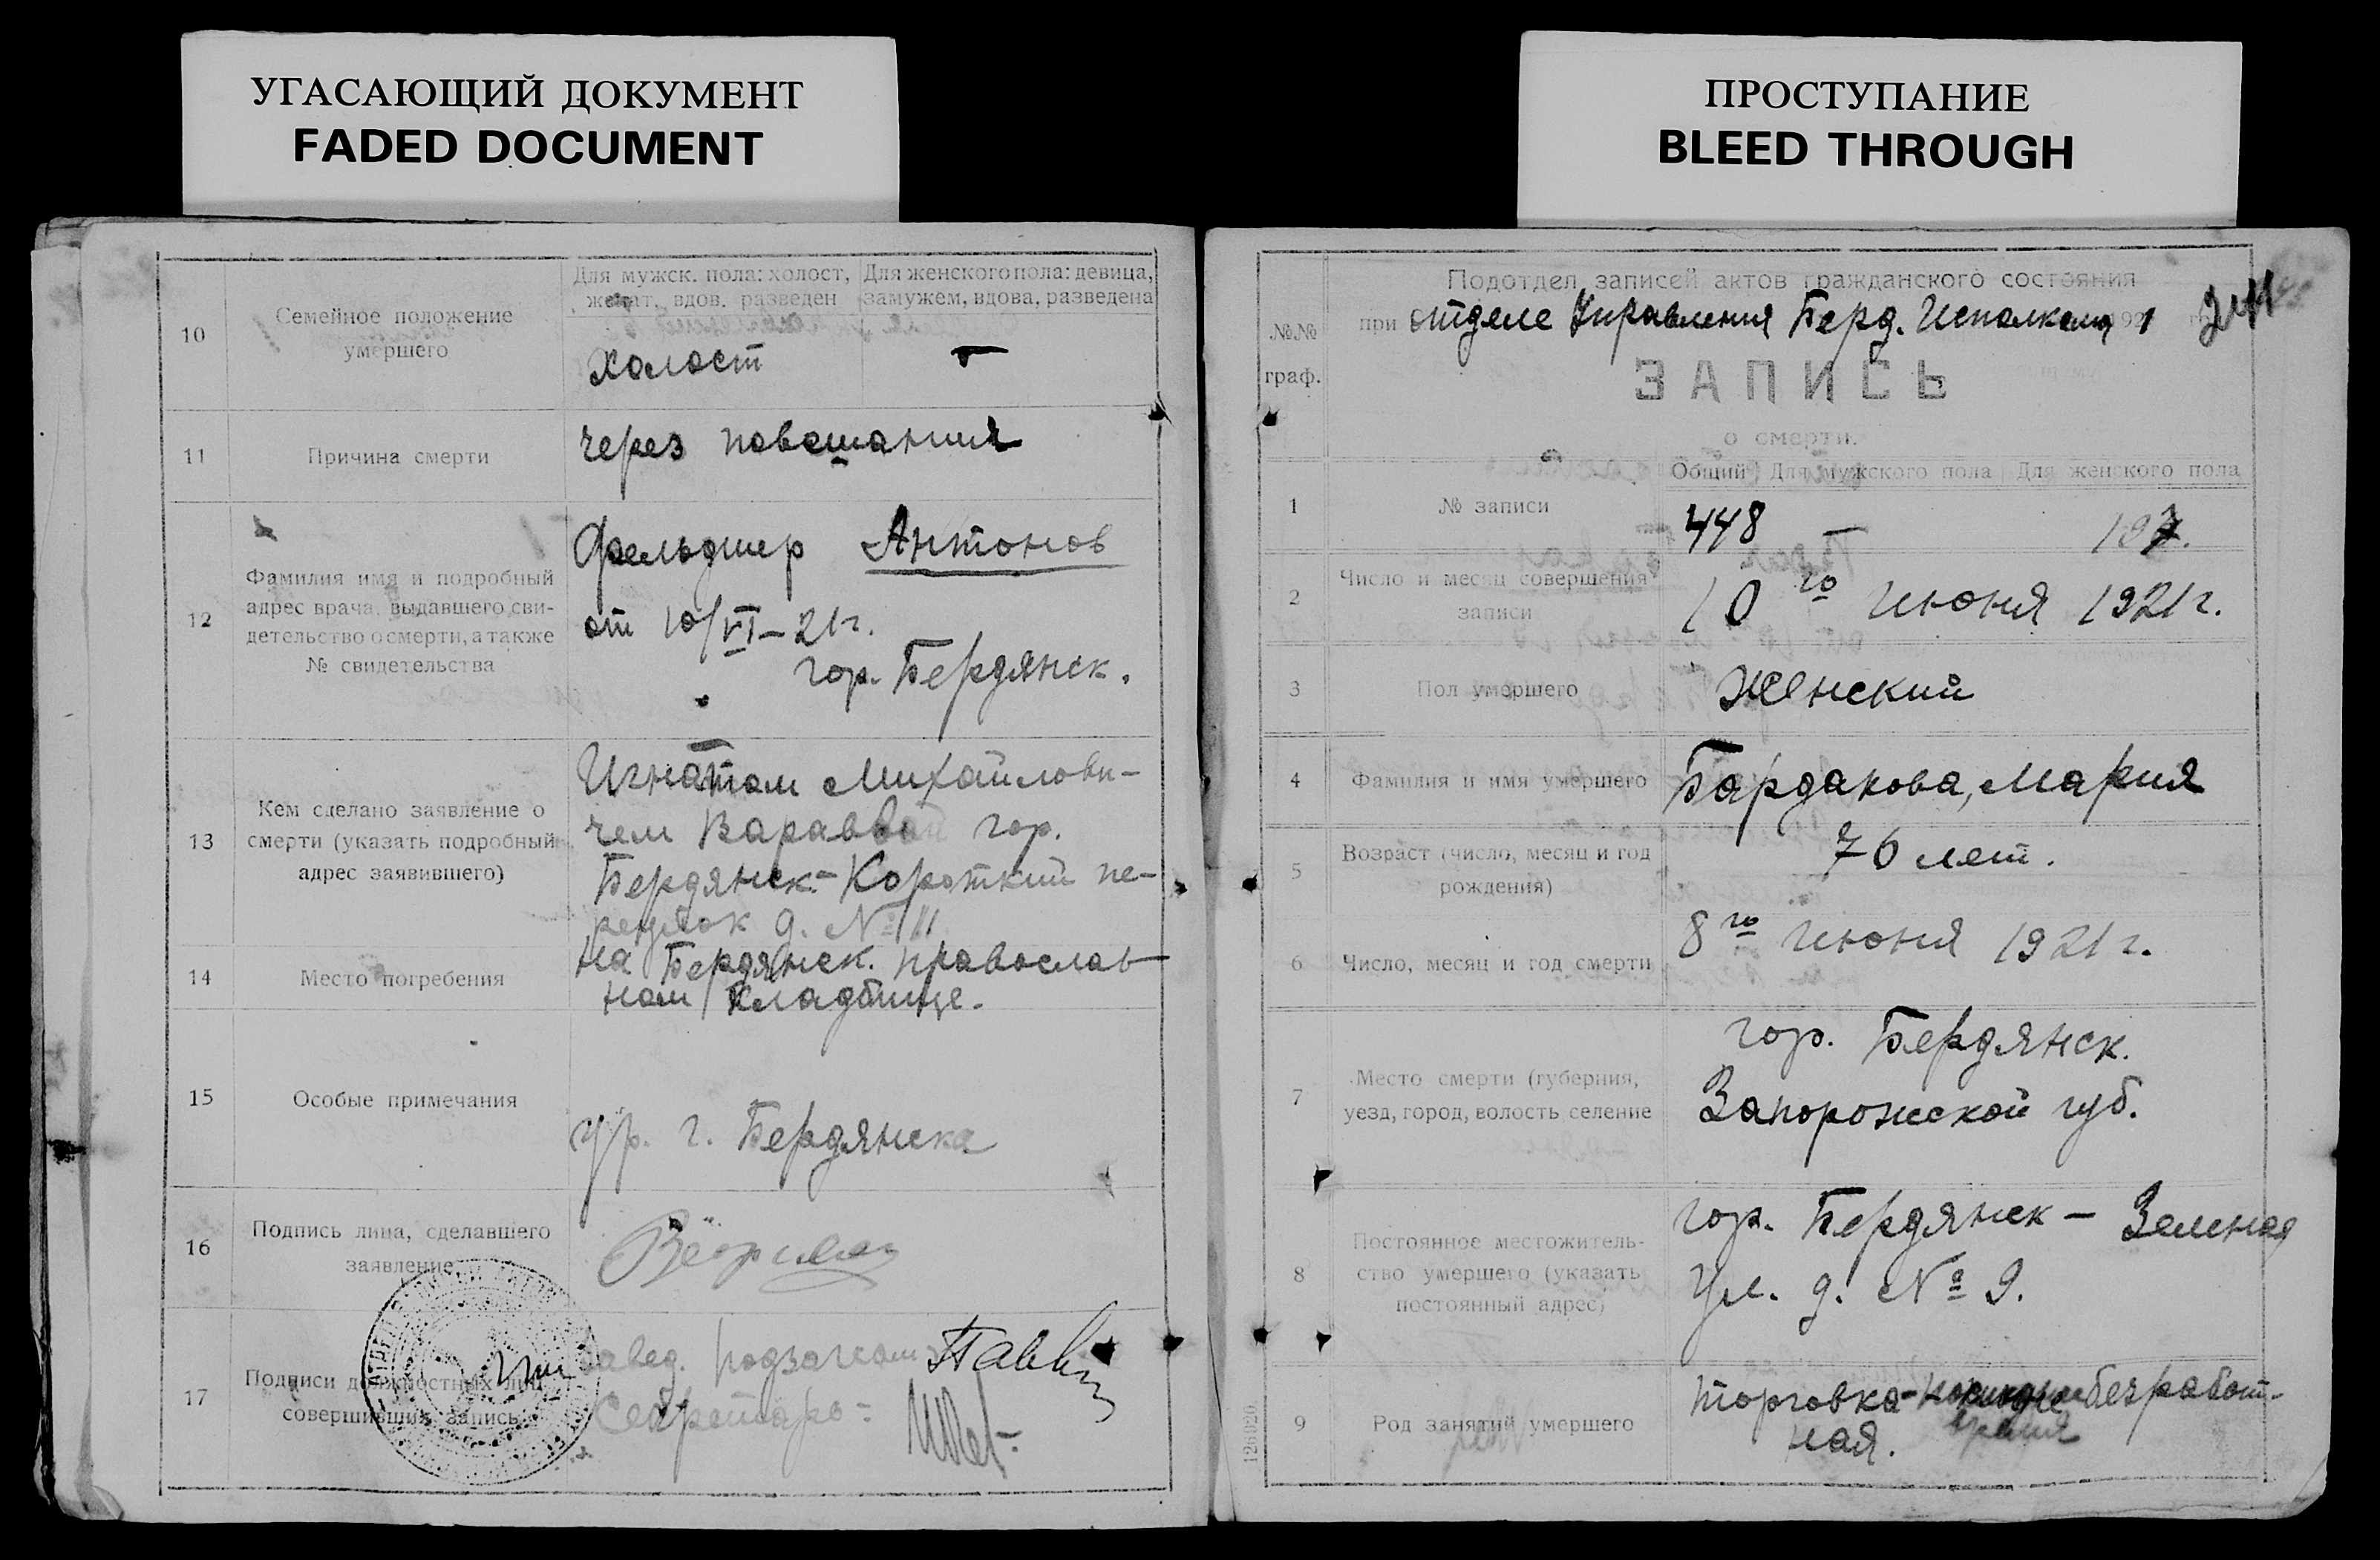 УГАСАЮЩИЙ ДОКУМЕНТ
FADED DOCUMENT
10
Семейное положение
умершего
Для мужск. пола: холост,
женат, вдов, разведен
Для женского пола: девица,
замужем, вдова, разведена
Холост
—
11
Причина смерти
через повешания
12
Фамилия имя и подробный
адрес врача, выдавшего сви-
детельство о смерти, а также
№ свидетельства
Фельдшер Антонов
от 10/VI—21г.
гор. Бердянск.
13
Кем сделано заявление о
смерти (указать подробный
адрес заявившего)
Игнатом Михайлови-
чем Вараввой гор.
Бердянск-Короткий пе-
реулок д. № 11
14
Место погребения
на Бердянск. православ-
ном кладбище.
15
Особые примечания
ур. г. Бердянска
16
Подпись лица, сделавшего
заявление
17
Подписи должностных лиц
совершивших запись
Завед. подзагсом
Секретарь:
ПРОСТУПАНИЕ
BLEED THROUGH
№№
граф.
Подотдел записей актов гражданского состояния
при отделе Управления Берд. Исполкома 1921 г.
ЗАПИСЬ
о смерти.
Общий
Для мужского пола
Для женского пола
1
№ записи
448
—
197.
2
Число и месяц совершения
записи
10го июня 1921 г.
3
Пол умершего
Женский
4
Фамилия и имя умершего
Бардакова, Мария
5
Возраст (число, месяц и год
рождения)
76 лет.
6
Число, месяц и год смерти
8го июня 1921 г.
7
Место смерти (губерния,
уезд, город, волость селение
гор. Бердянск.
Запорожской губ.
8
Постоянное местожитель-
ство умершего (указать
постоянный адрес)
гор. Бердянск — Зеленая
ул. д. № 9.
9
Род занятий умершего
торговка- безработ-
ная. время
126920